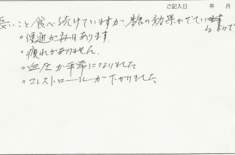 ご記入日 年 月
食べ続けていますが 効果がでています
○便通が毎日あります
○疲れがありません
○血圧が平常になりました
○コレストロールが下がりました